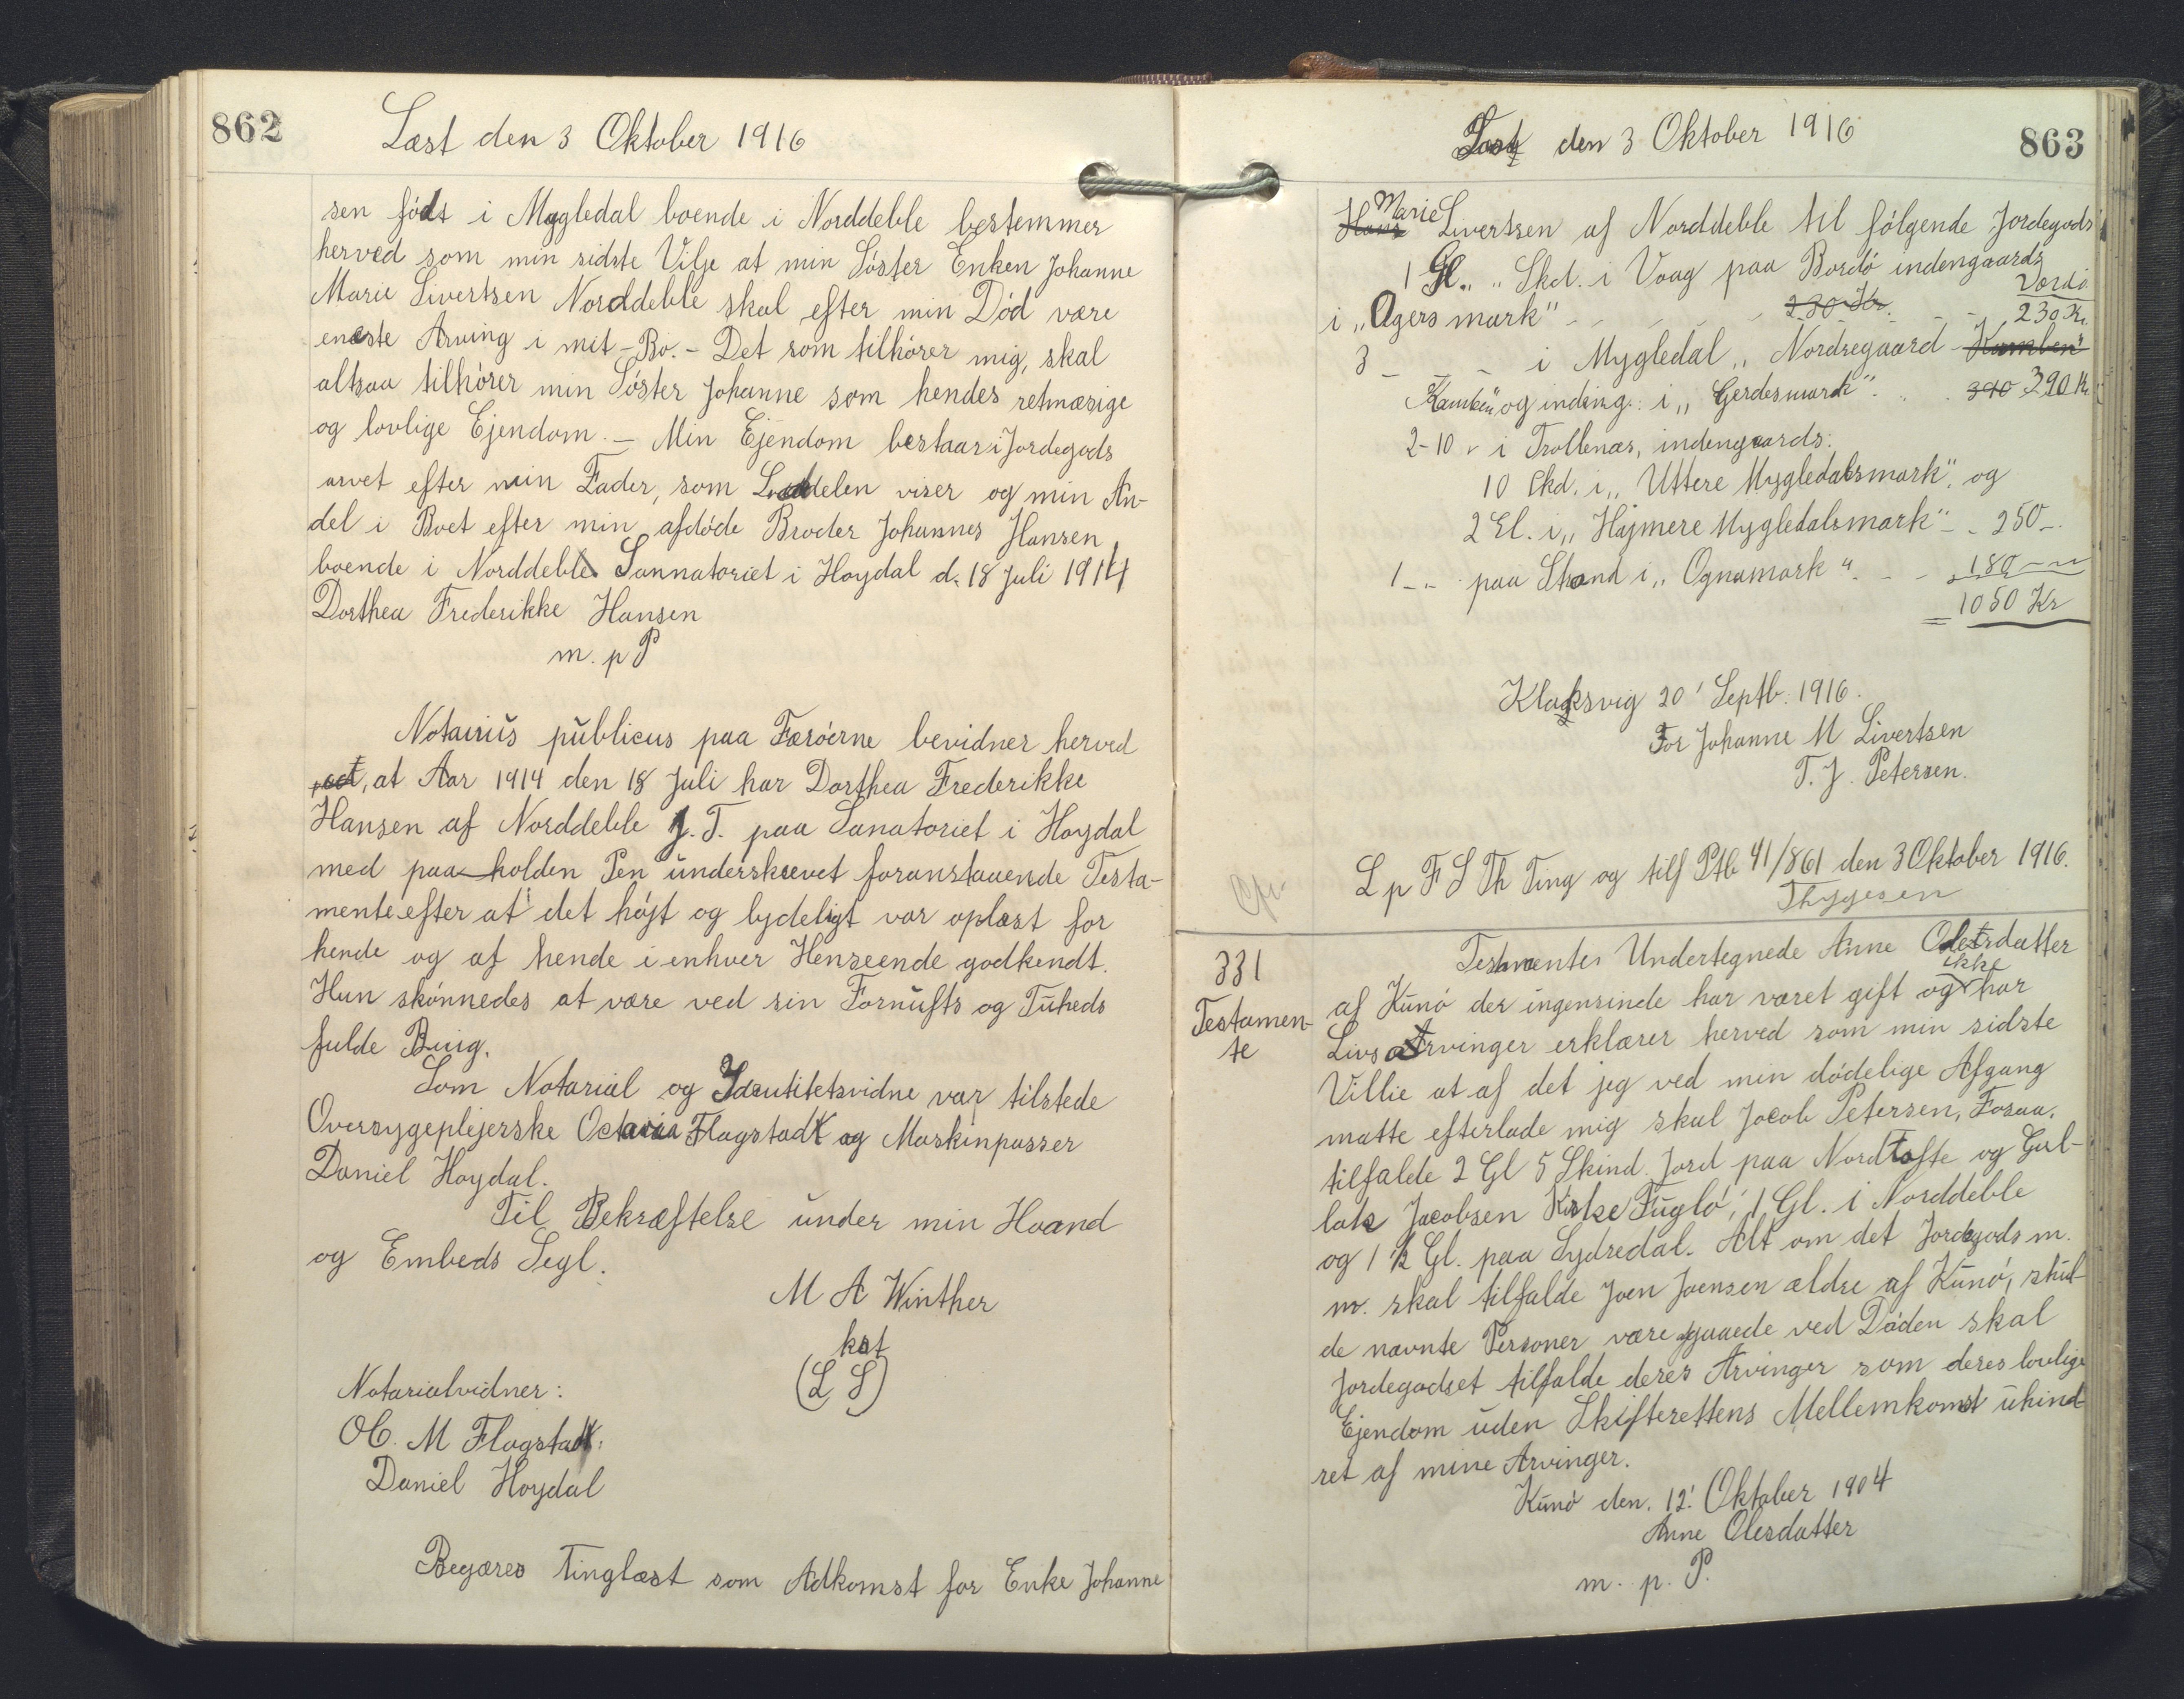 862
Læst den 3 Oktober 1916
sen født i Mygledal boende i Norddeble bestemmer
herved som min sidste Vilje at min Søster Enken Johanne
Marie Sivertsen Norddeble skal efter min Død være
eneste Arving i mit Bo. - Det som tilhører mig, skal
altsaa tilhører min Søster Johanne som hendes retmæsige
og lovlige Ejendom. - Min Ejendom bestaar i Jordegods
arvet efter min Fader, som Loddelen viser og min An-
del i Boet efter min afdøde Broder Johannes Hansen
boende i Norddeble Sannatoriet i Hoydal d. 18 Juli 1914
Dorthea Frederikke Hansen
m. p P
Notarius publicus paa Færøerne bevidner herved
, at Aar 1914 den 18 Juli har Dorthea Frederikke
Hansen af Norddeble J. T. paa Sanatoriet i Hoydal
med paaholden Pen underskrevet foranstaaende Testa-
mente efter at det højt og lydeligt var oplæst for
hende og af hende i enhver Henseende godkendt.
Hun skønnedes at være ved sin Fornufts og Tukeds
fulde Brug.
Som Notarial og Identitetsvidne var tilstede
Oversygeplejerske Octavia Flagstad og Maskinpasser
Daniel Hoydal.
Til Bekræftelse under min Haand
og Embeds Segl.
M A Winther
kst
(L S)
Notarialvidner:
O C. M Flagstad:
Daniel Hoydal
Begæres Tinglæst som Adkomst for Enke Johanne
863
Læst den 3 Oktober 1916
Marie
Hans Sivertsen af Norddeble til følgende Jordegods
1 Gl. " Skd. i Vaag paa Bordø indengaards
Værdi
i "Agersmark" - - - - 230 Kr. - - 230 Kr.
3 - - - i Mygledal "Nordregaard Kamben"
Kamben" og indeng: i "Gerdesmark" . . 390 390 Kr
2-10 " i Trollenæs, indengaards:
10 Skd. i "Uttere Mygledalsmark", og
2 Gl. i "Hajmere Mygledalsmark" - - 250 -
1 - - paa Strand i "Ognamark" - - - 180 - -
= 1050 Kr
Klaksvig 20' Septb: 1916.
For Johanne M Sivertsen
T. J. Petersen.
L p F S Th Ting og tilf Ptb 41/861 den 3 Oktober 1916.
Thygesen
331
Testamen-
te
Testamente: Undertegnede Anne Olesdatter
ikke
af Kunø der ingensinde har været gift og har
Livsarvinger erklærer herved som min sidste
Villie at af det jeg ved min dødelige Afgang
matte efterlade mig skal Jacob Petersen, Foraa,
tilfalde 2 Gl 5 Skind Jord paa Nordtofte og Gul-
lak Jacobsen Kirke Fuglø, 1 Gl. i Norddeble
og 1 ½ Gl. paa Sydredal. Alt om det Jordegods m.
m. skal tilfalde Joen Joensen ældre af Kunø, skul-
de nævnte Personer være afgaaede ved Døden skal
Jordegodset tilfalde deres Arvinger som deres lovlige
Ejendom uden Skifterettens Mellemkomst uhind
ret af mine Arvinger.
Kunø den 12' Oktober 1904
Anne Olesdatter
m. p. P.